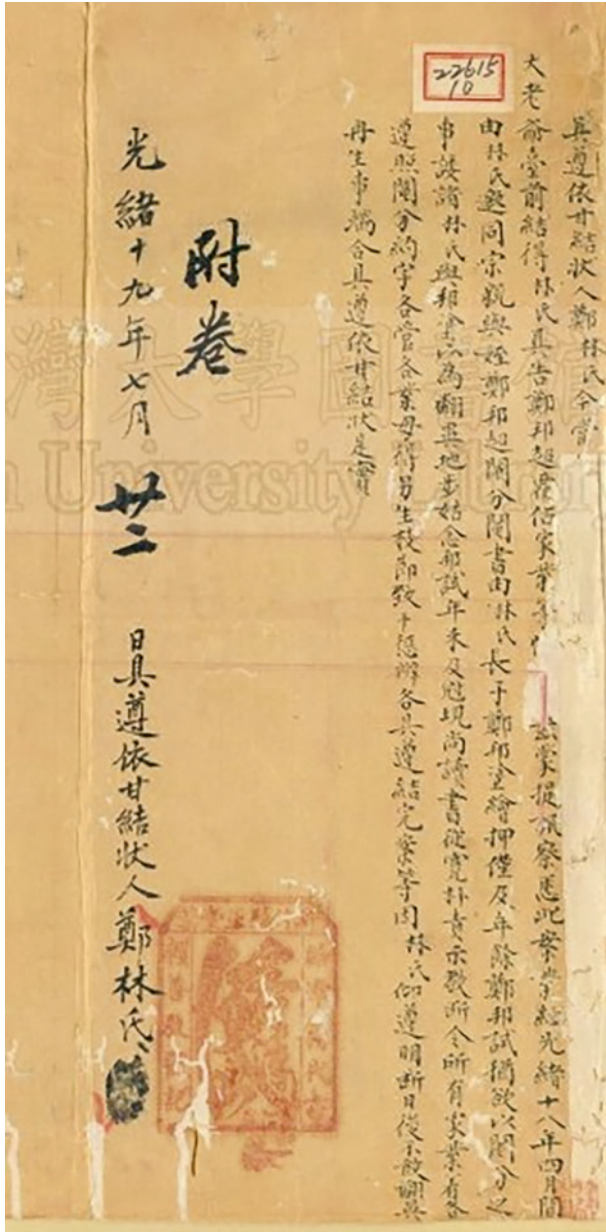 22615
10
具遵依甘結狀人鄭林氏今當
大老爺臺前結得林氏具告鄭邦超霸佔家業等情茲蒙提訊察悉此案業經光緒十八年四月間
由林氏邀同宗親與姪鄭邦超鬮分鬮書由林氏長子鄭邦塗繪押僅及年餘鄭邦試猶欲以鬮分之
事諉諸林氏與邦塗以為翻異地步姑念邦試年未及冠現尚讀書從寬朴責示儆斷令所有家業着各
遵照鬮分約字各管各業毋得另生枝節致干懲辦各具遵結完案等因林氏仰遵明斷日後不敢翻異
再生事端合具遵依甘結狀是實
附卷
光緒十九年七月廿二日具遵依甘結狀人鄭林氏
灣大學圖書
n University Library